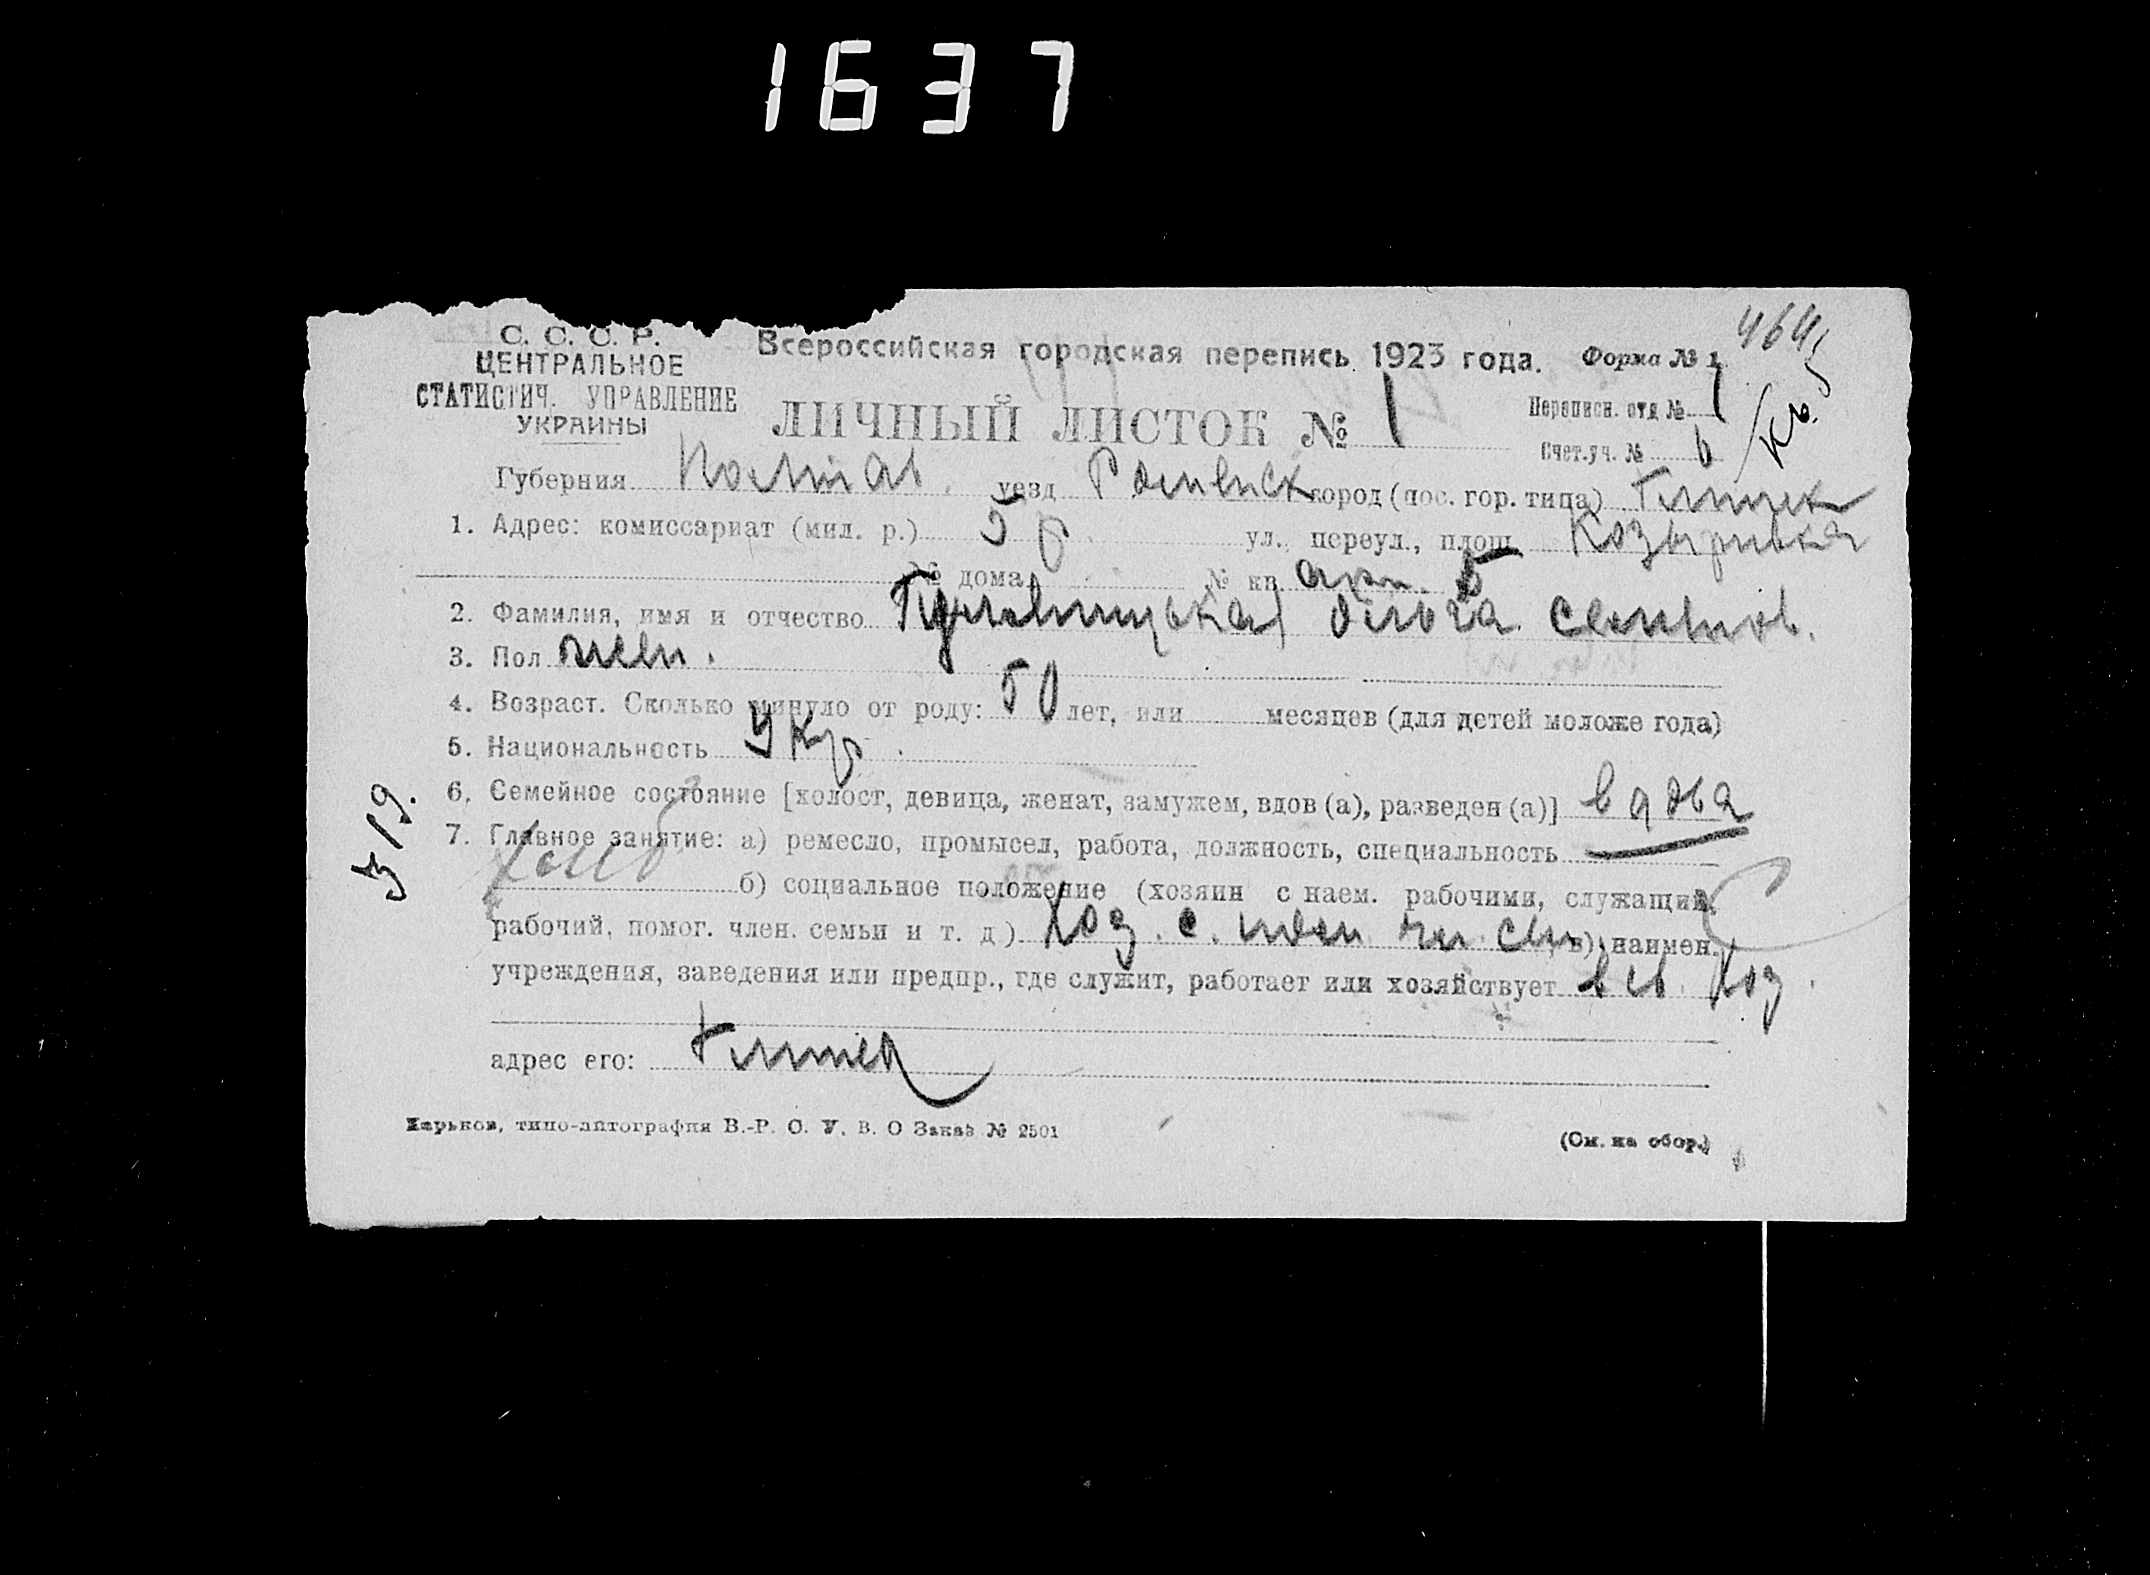 1637
С. С. С. Р.
ЦЕНТРАЛЬНОЕ
СТАТИСТИЧ. УПРАВЛЕНИЕ
УКРАИНЫ
Всероссийская городская перепись 1923 года. Форма № 1
ЛИЧНЫЙ ЛИСТОК № 1
Переписн. отд № 1
Счет.уч. № 6
Губерния Полтав. уезд Роменск город (пос. гор. типа) Глинск
1. Адрес: комиссариат (мил. р.) 5 р ул., переул., площ. Козыривка
№ дома № кв
2. Фамилия, имя и отчество Ольга
3. Пол жен.
4. Возраст. Сколько минуло от роду: 50 лет, или месяцев (для детей моложе года)
5. Национальность Укр.
6. Семейное состояние [холост, девица, женат, замужем, вдов (а), разведен (а)] вдова
7. Главное занятие: а) ремесло, промысел, работа, должность, специальность
б) социальное положение (хозяин с наем. рабочими, служащий,
рабочий, помог. член. семьи и т. д.) Хоз. с. чл. сем в) наимен.
учреждения, заведения или предпр., где служит, работает или хозяйствует в св. хоз.
адрес его: Глинск
Харьков, типо-литография В.-Р. О. У. В. О Заказ № 2501
(См. на обор.)
319.